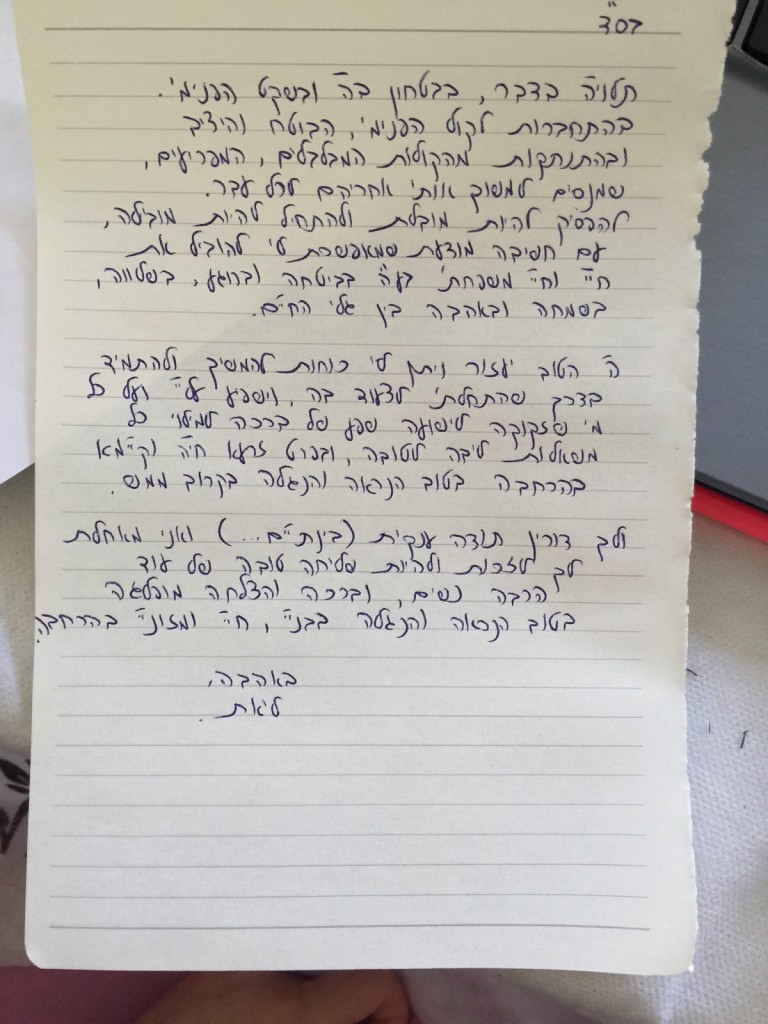 בס"ד
תלויה בדבר, בבטחון בה' ובשקט הפנימי.
בהתחברות לקול הפנימי, הבוטח והיציב
ובהתנתקות מהקולות המבלבלים, המפריעים,
שמנסים למשוך אותי אחריהם לכל עבר.
להפסיק להיות מובלת ולהתחיל להיות מובילה,
עם חשיבה מודעת שמאפשרת לי להוביל את
חיי וחיי משפחתי בע"ה בביטחה וברוגע, בשלווה,
בשמחה ובאהבה בין גלי החיים.
ה' הטוב יעזור ויתן לי כוחות להמשיך ולהתמיד
בדרך שהתחלתי לצעוד בה, וישפיע עליי ועל כל
מי שזקוקה לישועה שפע של ברכה למילוי כל
משאלות ליבה לטובה, ובפרט זרעא חייא וקיימא
בהרחבה בטוב הנראה והנגלה בקרוב ממש.
ולך דורין תודה ענקית (בינתיים...) ואני מאחלת
לך לזכות ולהיות שליחה טובה של עוד
הרבה נשים, וברכה והצלחה מופלגה
בטוב הנראה והנגלה בבניי, חיי ומזוניי בהרחבה.
באהבה,
ליאת.